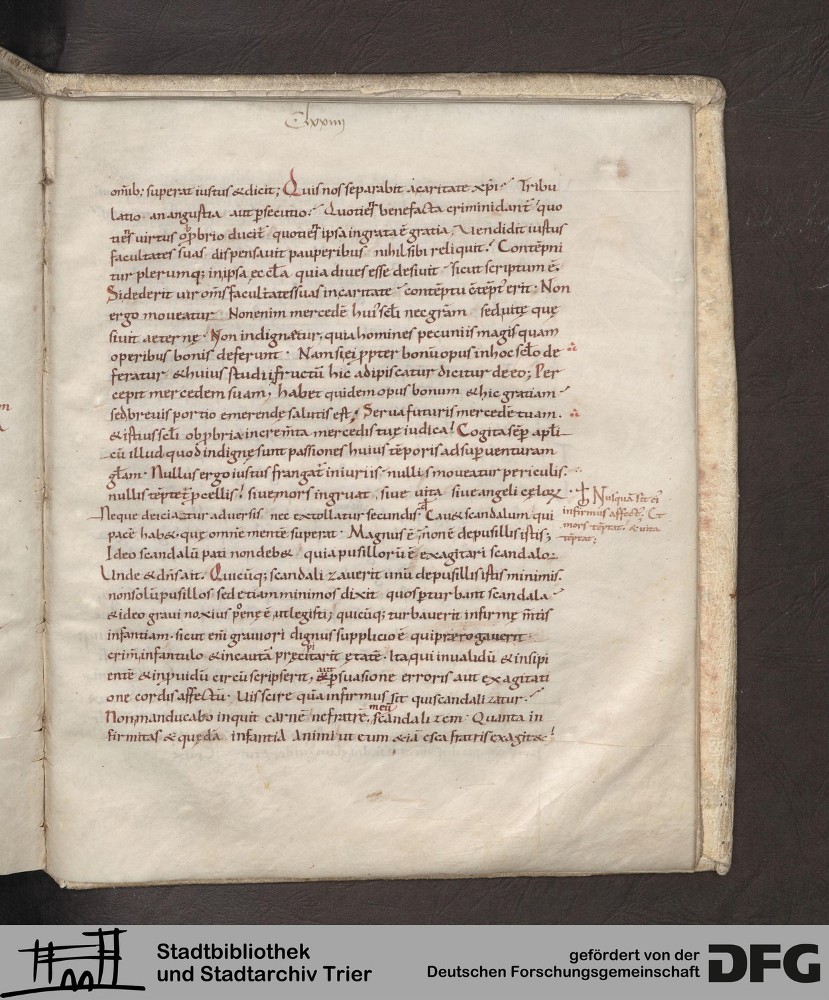 Clxxiiij
om̄ib; superat iustus & dicit; Quis nos separabit a caritate xp̄i? Tribu
latio an angustia aut psecutio? Quotiens benefacta criminidant quo
tiens virtus opbrio ducit quotiens ipsa ingrata ē gratia, Vendidit iustus
facultates suas dispensavit pauperibus nihil sibi reliquit. Contēpni
tur plerumq; in ipsa eccła quia dives esse desivit sicut scriptum ē.
Si dederit vir om̄s facultates suas in caritate contēptu c̄tēpt erit. Non
ergo moveatur Non enim mercedē hui scłi nec grām sed vitę quę
sivit aeternę. Non indignetur, quia homines pecuniis magis quam
operibus bonis deferunt. Nam si ei ppter bonū opus in hoc scło de
feratur & huius studii fructū hic adipiscatur dicitur de eo; Per
cepit mercedem suam, habet quidem opus bonum & hic gratiam
sed brevis portio emerendę salutis est. Serva futuris mercedē tuam.
& istius scłi obpbria incremta mercedis tuę iudica! Cogita sēp apłi
cū illud quod indignę sunt passiones huius tēporis ad supventuram
głam. Nullus ergo iustus frangat iniuriis nullis moveatur periculis.
nullis tēptet pcellis! sive mors ingruat, sive vita sive angeli
Nulquā sit ei
infirmus affect. Et
mors tēptat. & vita
tēptat;
Neque deiciatur adversis nec extollatur secundis. Cave scandalum qui
pacē hab& quę omnē mentē superat. Magnus ē non ē de pusillis istis;
Ideo scandalū pati non deb& quia pusillorū ē exagitari scandalo
Unde & dn̄s ait. Quicūq; scandalizaverit unū de pusillis istis minimis.
non solū pusillos sed etiam minimos dixit quos pturbant scandala
& ideo gravi noxius poenę ē, ut legisti; quicūq; turbaverit infirmę m̄tis
infantiam. sicut eni graviori dignus supplicio ē qui prærogaverit
crim̄ infantulo & incautā pręcipitarit ętatē. Ita, qui invalidū & insipi
entē & inpvidū circūscripserit, aut psuasione erroris aut exagitati
one cordis affectū. Vis scire quā infirmus sit qui scandalizatur.
Non manducabo inquit carnē ne fratrē meū scandalizem. Quanta in
firmitas & quędā infantia animi ut eum &iā esca fratris exagit&!
Stadtbibliothek
und Stadtarchiv Trier
gefördert von der
Deutschen Forschungsgemeinschaft
DFG